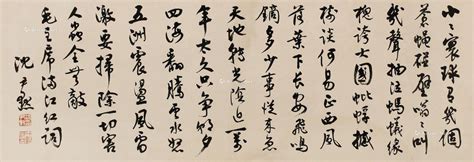 小小寰球有几個
蒼蠅碰壁嗡叫
幾聲抽泣螞蟻緣
槐誇大國蚍蜉撼
樹談何易正西風
落葉下長安飛鳴
鏑多少事從來急
天地轉光陰迫一萬
年太久只爭朝夕
四海翻騰雲水怒
五洲震盪風雷
激要掃除一切害
人蟲全無敵
毛主席滿江紅詞
沈尹默